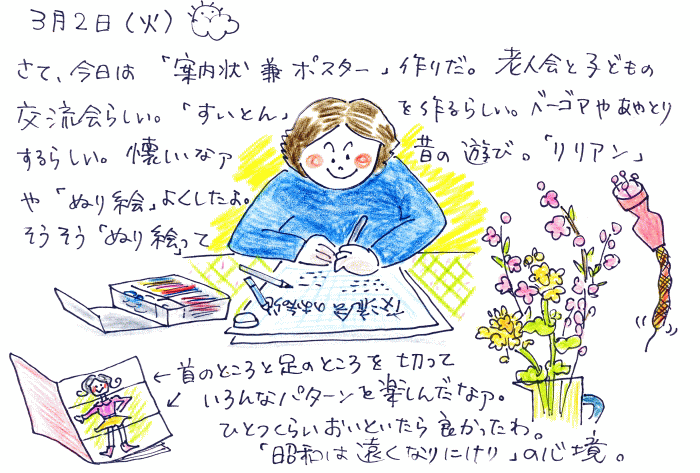 3月2日(火)
さて、今日は「案内状兼ポスター」作りだ。老人会と子どもの
交流会らしい。「すいとん」を作るらしい。ベーゴマやあやとり
するらしい。懐しいなァ 昔の遊び。「リリアン」
や「ぬり絵」よくしたよ。
そうそう「ぬり絵」って
交流会のお知らせ
←首のところと足のところを切って
いろんなパターンを楽しんだなァ。
ひとつくらいおいといたら良かったわ。
「昭和は遠くなりにけり」の心境。